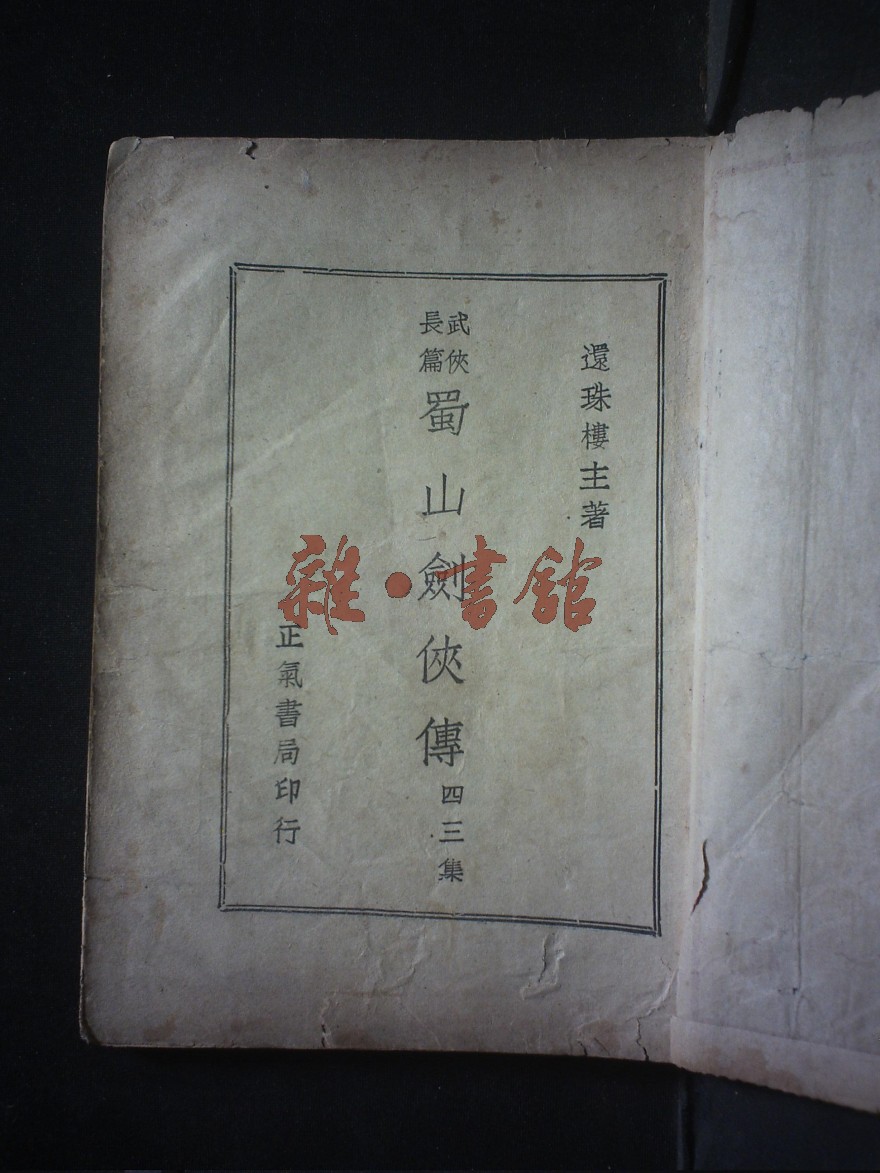 還珠樓主著
武俠
長篇
蜀山劍俠傳
四三集
正氣書局印行
雜·書館